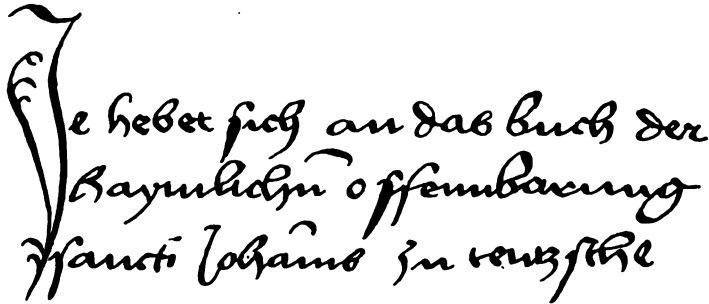 Je hebet sich an das buch der
haymlichn̄ offennbarung
sancti Joha̅nis zu teutzsche